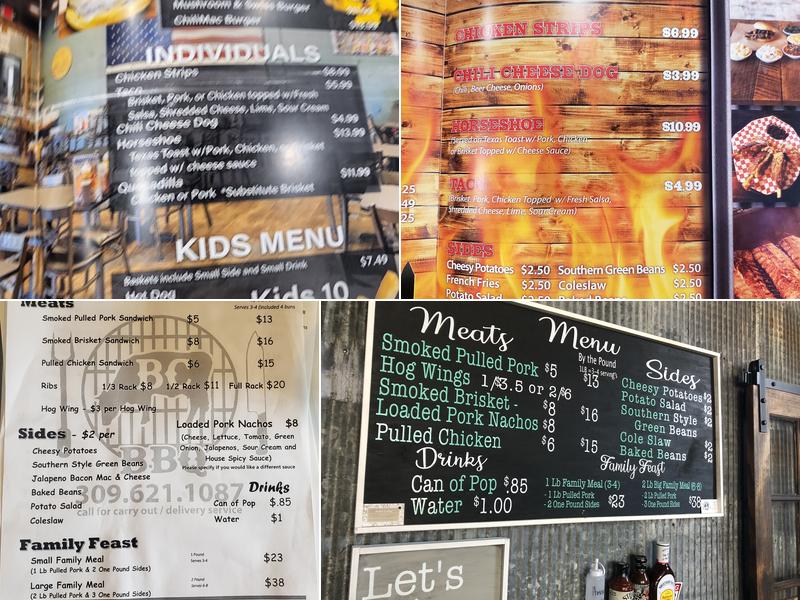 Mushroom & Swiss Burger
Chili/Mac Burger
INDIVIDUALS
Chicken Strips $6.99
Taco $5.99
Brisket, Pork, or Chicken topped w/Fresh
Salsa, Shredded Cheese, Lime, Sour Cream
Chili Cheese Dog $4.99
Horseshoe $13.99
Texas Toast w/Pork, Chicken, Brisket
topped w/ cheese sauce
Quesadilla $11.99
Chicken or Pork *Substitute Brisket
KIDS MENU
$7.49
Baskets include Small Side and Small Drink
Hot Dog
Kids 10
CHICKEN STRIPS $6.99
CHILI CHEESE DOG $3.99
(Chili, Beer Cheese, Onions)
HORSESHOE $10.99
(Served on Texas Toast w/ Pork, Chicken
or Brisket Topped w/ Cheese Sauce)
TACO $4.99
(Brisket, Pork, Chicken Topped w/ Fresh Salsa,
Shredded Cheese, Lime, Sour Cream)
25
49
25
SIDES
Cheesy Potatoes $2.50 Southern Green Beans $2.50
French Fries $2.50 Coleslaw $2.50
Potato Salad $2.50 Baked Beans $2.50
Meats
Serves 3-4 (Included 4 buns
Smoked Pulled Pork Sandwich $5 $13
Smoked Brisket Sandwich $8 $16
Pulled Chicken Sandwich $6 $15
Ribs 1/3 Rack $8 1/2 Rack $11 Full Rack $20
Hog Wing - $3 per Hog Wing
Loaded Pork Nachos $8
(Cheese, Lettuce, Tomato, Green
Onion, Jalapenos, Sour Cream and
House Spicy Sauce)
Please specify if you would like a different sauce
Sides - $2 per
Cheesy Potatoes
Southern Style Green Beans
Jalapeno Bacon Mac & Cheese
Baked Beans
Potato Salad
Coleslaw
BBQ
309.621.1087
call for carry out / delivery service
Drinks
Can of Pop $.85
Water $1
Family Feast
Small Family Meal 1 Pound Serves 3-4 $23
(1 Lb Pulled Pork & 2 One Pound Sides)
Large Family Meal 2 Pound Serves 6-8 $38
(2 Lb Pulled Pork & 3 One Pound Sides)
Meats Menu
By the Pound
1LB = 3-4 servings
Smoked Pulled Pork $5 $13
Hog Wings 1/$3.5 or 2/$6
Smoked Brisket - $8 $16
Loaded Pork Nachos $8
Pulled Chicken $6 $15
Sides
Cheesy Potatoes $2
Potato Salad $2
Southern Style
Green Beans $2
Cole Slaw $2
Baked Beans $2
Drinks
Can of Pop $.85
Water $1.00
Family Feast
1 Lb Family Meal (3-4)
- 1 Lb Pulled Pork
- 2 One Pound Sides $23
2 Lb Big Family Meal (6-8)
- 2 Lb Pulled Pork
- 3 One Pound Sides $38
Let's